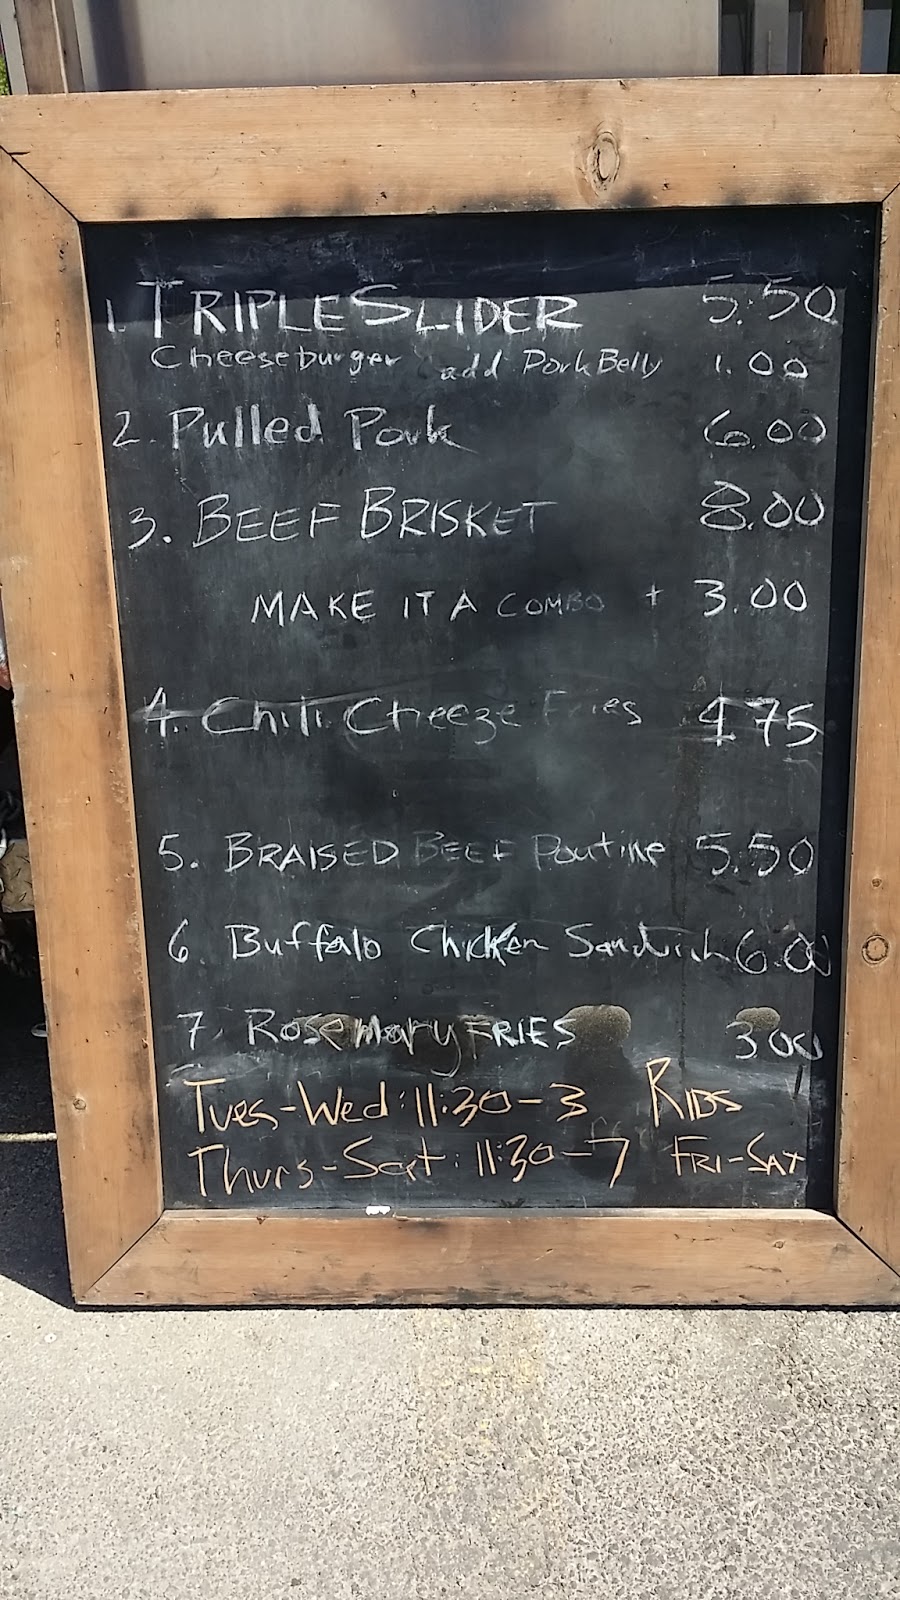 1. TRIPLE SLIDER 5.50
Cheeseburger add Pork Belly 1.00
2. Pulled Pork 6.00
3. BEEF BRISKET 8.00
MAKE IT A COMBO + 3.00
4. Chili Cheeze Fries 4.75
5. BRAISED BEEF Poutine 5.50
6. Buffalo Chicken Sandwich 6.00
7. Rosemary FRIES 3.00
Tues-Wed: 11:30-3 RIBS
Thurs-Sat: 11:30-7 FRI-SAT